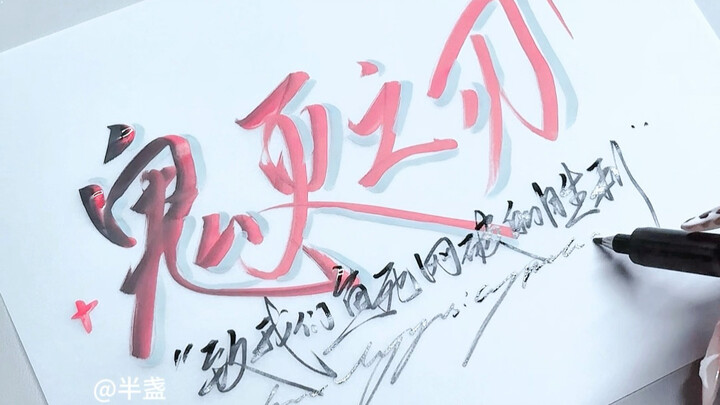 鬼灭之刃
"致我们鱼死网破的胜利"
@半盏